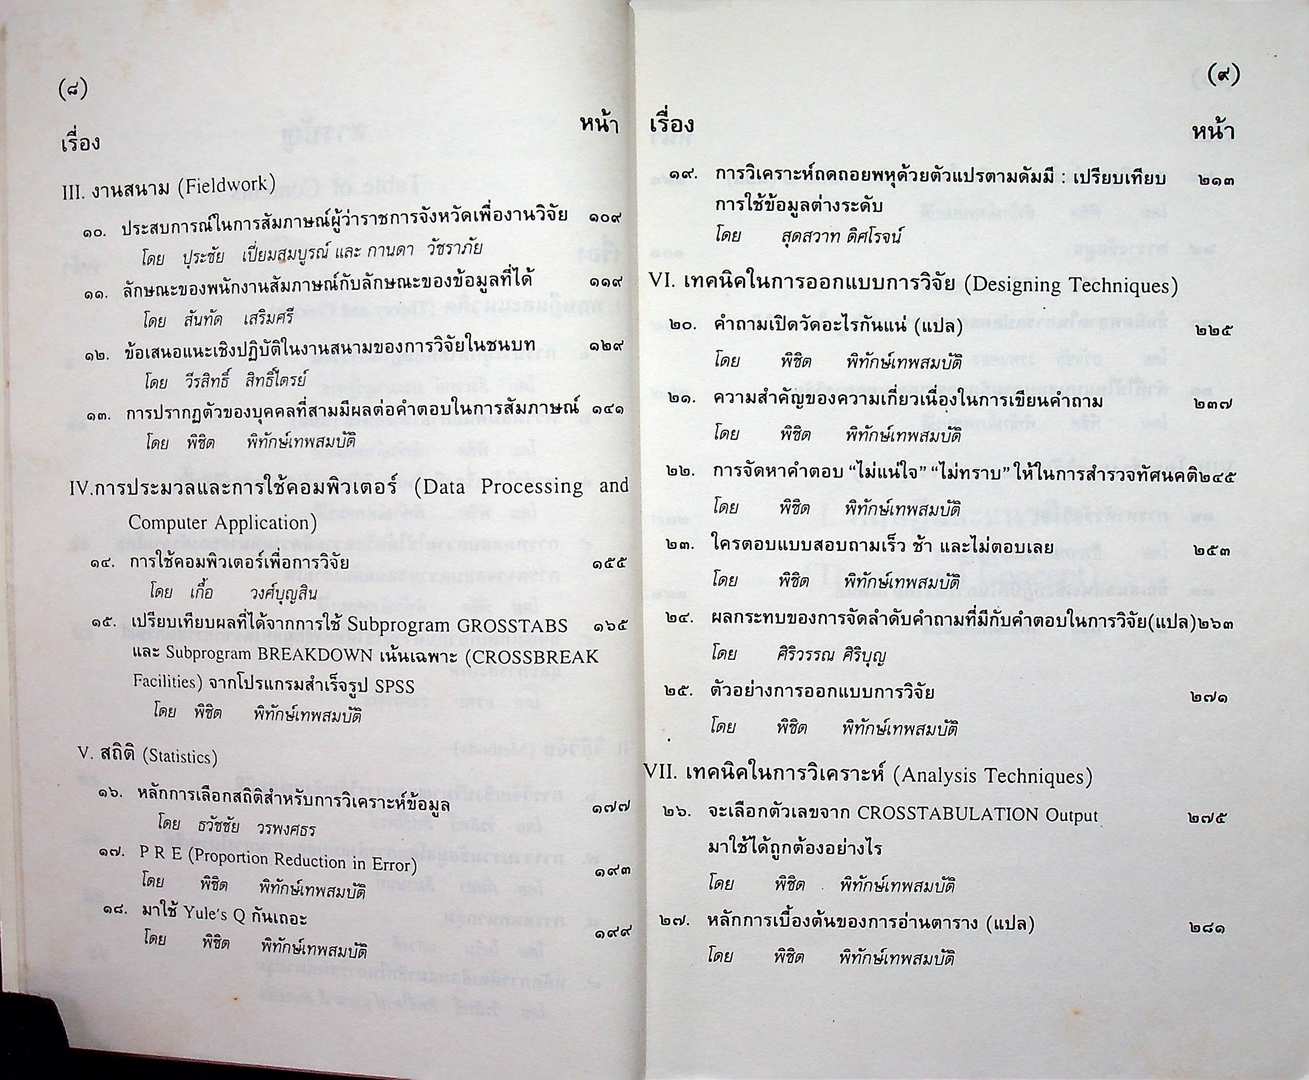 (๘)
เรื่อง หน้า
III. งานสนาม (Fieldwork)
๑๐. ประสบการณ์ในการสัมภาษณ์ผู้ว่าราชการจังหวัดเพื่องานวิจัย ๑๐๙
โดย ประชัย เปี่ยมสมบูรณ์ และ กานดา วัชราภัย
๑๑. ลักษณะของพนักงานสัมภาษณ์กับลักษณะของข้อมูลที่ได้ ๑๑๙
โดย สันทัด เสริมศรี
๑๒. ข้อเสนอแนะเชิงปฏิบัติในงานสนามของการวิจัยในชนบท ๑๒๙
โดย วีรสิทธิ์ สิทธิไตรย์
๑๓. การปรากฏตัวของบุคคลที่สามมีผลต่อคำตอบในการสัมภาษณ์ ๑๔๑
โดย พิชิต พิทักษ์เทพสมบัติ
IV.การประมวลและการใช้คอมพิวเตอร์ (Data Processing and
Computer Application)
๑๔. การใช้คอมพิวเตอร์เพื่อการวิจัย ๑๕๕
โดย เกื้อ วงศ์บุญสิน
๑๕. เปรียบเทียบผลที่ได้จากการใช้ Subprogram GROSSTABS ๑๖๕
และ Subprogram BREAKDOWN เน้นเฉพาะ (CROSSBREAK
Facilities) จากโปรแกรมสำเร็จรูป SPSS
โดย พิชิต พิทักษ์เทพสมบัติ
V. สถิติ (Statistics)
๑๖. หลักการเลือกสถิติสำหรับการวิเคราะห์ข้อมูล ๑๗๗
โดย ธวัชชัย วรพงศธร
๑๗. P R E (Proportion Reduction in Error) ๑๙๓
โดย พิชิต พิทักษ์เทพสมบัติ
๑๘. มาใช้ Yule's Q กันเถอะ ๑๙๙
โดย พิชิต พิทักษ์เทพสมบัติ
(๙)
เรื่อง หน้า
๑๙. การวิเคราะห์ถดถอยพหุด้วยตัวแปรตามดัมมี่ : เปรียบเทียบ ๒๑๓
การใช้ข้อมูลต่างระดับ
โดย สุดสวาท ดิศโรจน์
VI. เทคนิคในการออกแบบการวิจัย (Designing Techniques)
๒๐. คำถามเปิดวัดอะไรกันแน่ (แปล) ๒๒๕
โดย พิชิต พิทักษ์เทพสมบัติ
๒๑. ความสำคัญของความเกี่ยวเนื่องในการเขียนคำถาม ๒๓๗
โดย พิชิต พิทักษ์เทพสมบัติ
๒๒. การจัดหาคำตอบ “ไม่แน่ใจ” “ไม่ทราบ” ให้ในการสำรวจทัศนคติ๒๔๕
โดย พิชิต พิทักษ์เทพสมบัติ
๒๓. ใครตอบแบบสอบถามเร็ว ช้า และไม่ตอบเลย ๒๕๓
โดย พิชิต พิทักษ์เทพสมบัติ
๒๔. ผลกระทบของการจัดลำดับคำถามที่มีกับคำตอบในการวิจัย(แปล)๒๖๓
โดย ศิริวรรณ ศิริบุญ
๒๕. ตัวอย่างการออกแบบการวิจัย ๒๗๑
โดย พิชิต พิทักษ์เทพสมบัติ
VII. เทคนิคในการวิเคราะห์ (Analysis Techniques)
๒๖. จะเลือกตัวเลขจาก CROSSTABULATION Output ๒๗๕
มาใช้ได้ถูกต้องอย่างไร
โดย พิชิต พิทักษ์เทพสมบัติ
๒๗. หลักการเบื้องต้นของการอ่านตาราง (แปล) ๒๘๑
โดย พิชิต พิทักษ์เทพสมบัติ